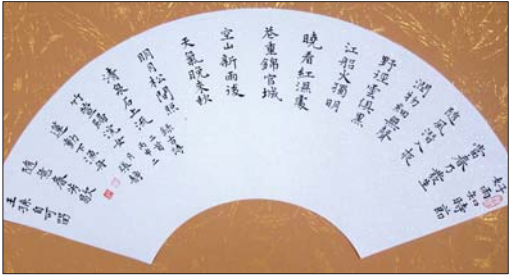 好雨知時節
當春乃發生
隨風潛入夜
潤物細無聲
野逕雲俱黑
江船火獨明
曉看紅濕處
花重錦官城
空山新雨後
天氣晚來秋
明月松間照
清泉石上流
竹喧歸浣女
蓮動下漁舟
隨意春芳歇
王孫自可留
錄古詩
二首